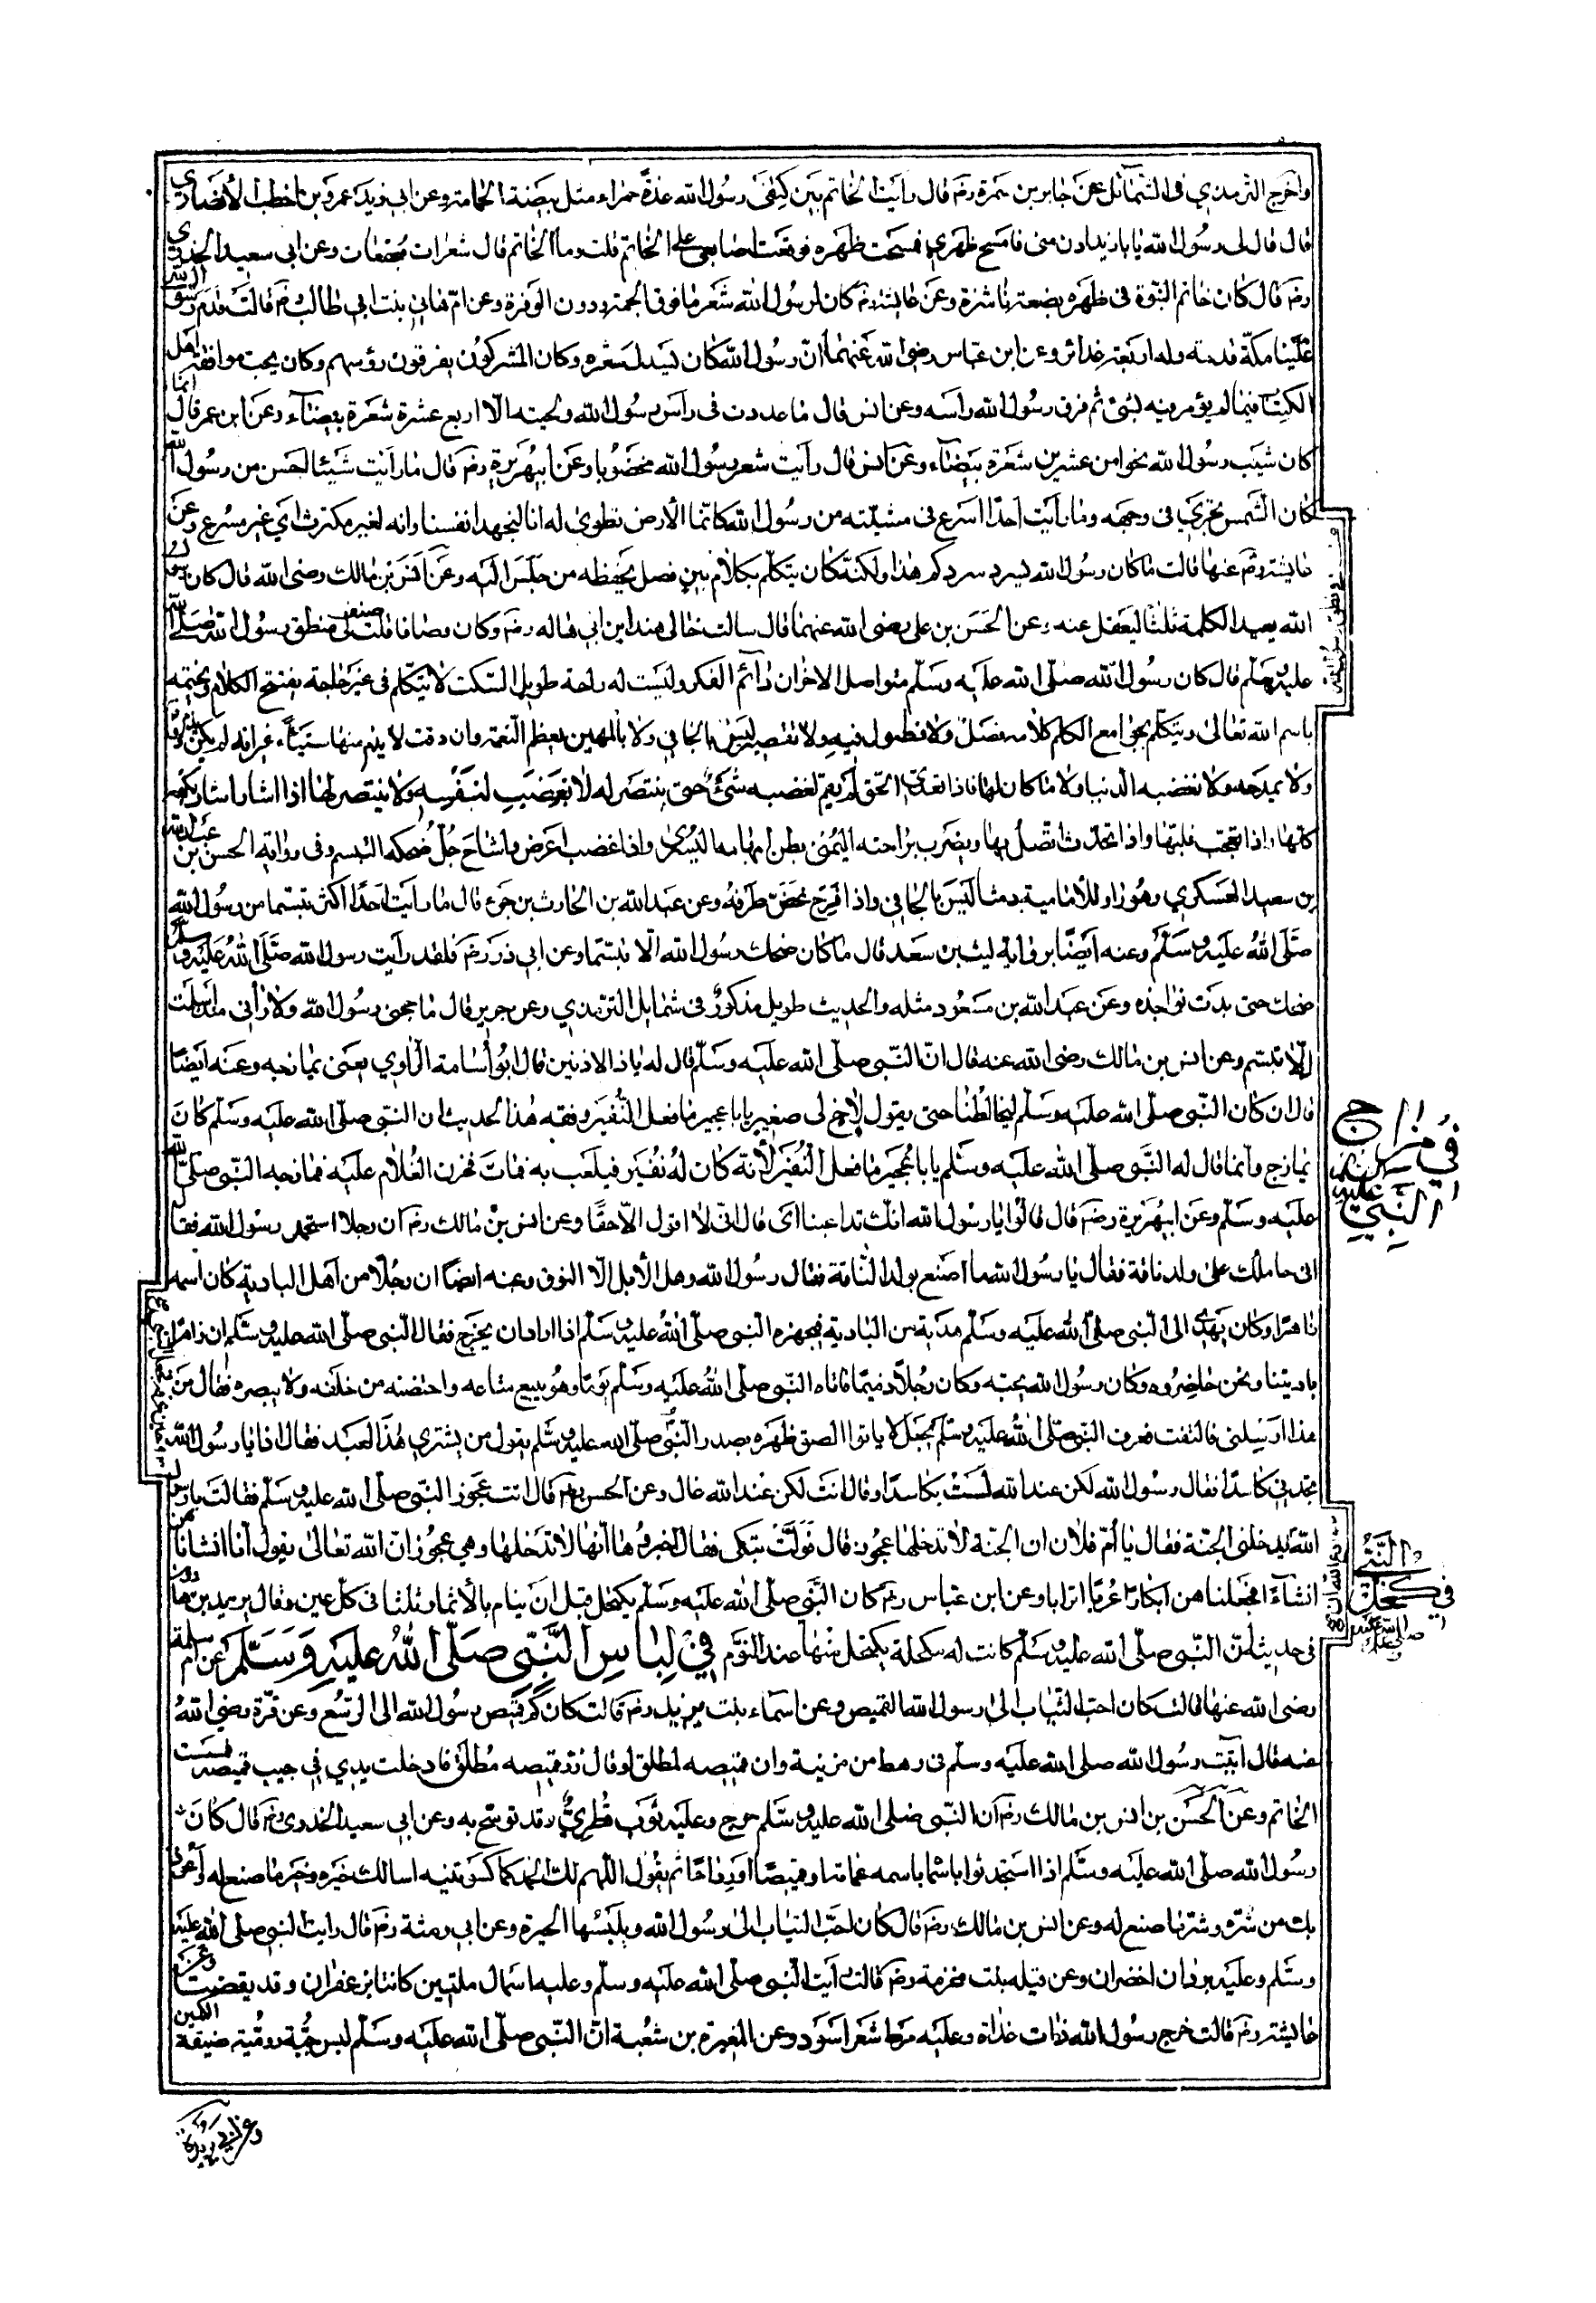 واخرج الترمذي في الشمائل عن جابر بن سمرة رضم قال رأيت الخاتم بين كتفى رسول الله غدةً حمراء مثل بيضة الحمامة وعن ابي زيد عمرو بن اخطب الأنصاري
قال قال لى رسول الله يا بازيد ادن منى فامسح ظهري فمسحت ظهره فوقعت اصابعى على الخاتم قلت وما الخاتم قال شعرات مجتمعات وعن ابى سعيد الخدري
رضم قال كان خاتم النبوة فى ظهره بضعة ناشزة وعن عايشة رضم كان لرسول الله شعر ما فوق الجمة ودون الوفرة وعن امّ هاني بنت ابي طالب رضم قالت قدم رسول الله
علينا مكة قدمة وله اربعة غدائر وعن ابن عباس رضى الله عنهما انّ رسول الله كان يسدل شعره وكان المشركون يفرقون رؤسهم وكان يحب موافقة اهل
الكتاب فيما لم يؤمر فيه بشئ ثم فرق رسول الله راسه وعن انس قال ما عددت فى رأس رسول الله ولحيته الّا اربع عشرة شعرة بيضآء وعن ابن عمر قال انما
كان شيب رسول الله نحوا من عشرين شعرة بيضاء وعن انس قال رأيت شعر رسول الله مخضوبا وعن ابيهريرة رضم قال ما رأيت شيئا احسن من رسول الله
كان الشمس تجري في وجهه وما رأيت احدًا اسرع فى مشيته من رسول الله كانّما الأرض تطوى له انا لنجهد انفسنا وانه لغير مكترث اي غير مسرع وعن
عايشة رضم عنها قالت ما كان رسول الله يسرد سردكم هذا ولكنّه كان يتكلّم بكلام بين فصل يحفظه من جلس اليه وعن انس بن مالك رضى الله قال كان رسول
الله يعيد الكلمة ثلثا لتعقل عنه وعن الحسن بن على رضى الله عنهما قال سالت خالى هند ابن ابي هاله رضم وكان وصافا قلت صف لى منطق رسول الله صلى الله
عليه وسلّم قال كان رسول الله صلّى الله عليه وسلّم متواصل الاحزان دآئم الفكر وليست له راحة طويل السكت لا يتكلم فى غير حاجة يفتتح الكلام ويختمه
باسم الله تعالى ويتكلّم بجوامع الكلم كلامه فصل ولا فضول فيه ولا تقصير ليس بالجافي ولا بالمهين يعظم النعمة وان دقت لا يذم منها شيئًا غير انه لم يكن يذم ذواقا
ولا يمدحه ولا تغضبه الدنيا ولا ما كان لها فاذا تعدّي الحق لم يقم لغضبه شئ حتى ينتصر له لا يغضب لنفسه ولا ينتصر لها اذا اشار اشار بكفه
كلها واذا تعجب قلبها واذا تحدّث اتصل بها ويضرب براحته اليمنى بطن ابهامه اليسرى واذا غضب اعرض واشاح جُلّ ضحكه التبسم وفى رواية الحسن بن عبد الله
بن سعيد العسكري وليس بالجافي واذا فرح غضّ طرفه وعن عبد الله بن الحارث بن جزء قال ما رأيت احدًا اكثر تبسّما من رسول الله
صلّى الله عليه وسلّم وعنه ايضًا برواية ليث بن سعد قال ما كان ضحك رسول الله الّا تبسّما وعن ابي ذر رضم فلقد رأيت رسول الله صلّى الله عليه وسلم
ضحك حتى بدت نواجذه وعن عبد الله بن مسعود مثله والحديث طويل مذكورٌ فى شمايل الترمذي وعن جرير قال ما حجبنى رسول الله ولا رأنى منذ اسلمت
الّا تبسم وعن انس بن مالك رضى الله عنه قال انّ النبى صلّى الله عليه وسلّم قال له ياذا الاذنين قال ابو أسامة الراوي يعنى يمازحه وعنه ايضًا
قال ان كان النبّى صلّى الله عليه وسلّم ليخالطنا حتى يقول لأخ لى صغير يابا عمير ما فعل النغير وفقه هذا الحديث ان النبّى صلّى الله عليه وسلّم كان
يمازح وانما قال له النبّى صلّى الله عليه وسلّم يابا عمير ما فعل النغير لأنّه كان له نغير فيلعب به فمات فحزن الغلام عليه فمازحه النبّى صلّى الله
عليه وسلّم وعن ابيهريرة رضم قال قالوا يا رسول الله انك تداعبنا قال انّى لا اقول الاّ حقًا وعن انس بن مالك رضم ان رجلا استحمل رسول الله فقال
انى حاملك على ولد ناقة فقال يا رسول الله ما اصنع بولد الناقة فقال رسول الله وهل الأبل الّا النوق وعنه ايضًا ان رجُلًا من اهل البادية كان اسمه
زاهرًا وكان يهدى الى النّبى صلّى الله عليه وسلّم هدية من البادية فيجهزه النبى صلّى الله عليه وسلّم اذا اراد ان يخرج فقال النّبى صلّى الله عليه وسلّم ان زاهرًا
باديتنا ونحن حاضروه وكان رسول الله يحبه وكان رجُلًا دميمًا فاتاه النبّى صلّى الله عليه وسلّم يومًا وهو يبيع متاعه واحتضنه من خلفه ولا يبصره فقال من
هذا ارسلنى فالتفت فعرف النبّى صلّى الله عليه وسلّم فجعل لا يالوا الصق ظهره بصدر النبّى صلّى الله عليه وسلّم يقول من يشتري هذا العبد فقال اذا يا رسول الله
تجدني كاسدًا فقال رسول الله لكن عند الله لست بكاسدًا وقال انت لكن عند الله غال وعن الحسن رضم قال اتت عجوز النبّى صلّى الله عليه وسلّم فقالت يا رسول
الله يدخلنى الجنّة فقال يا أمّ فلان ان الجنة لا تدخلها عجوز قال فولّت تبكى فقال اخبروها انّها لا تدخلها وهى عجوز انّ الله تعالى يقول انّا انشاناهن
انشآءً فجعلناهن ابكارًا عُربًا اترابا وعن ابن عباس رضم كان النّبى صلّى الله عليه وسلّم يكتحل قبل ان ينام بالأثمد ثلثا فى كلّ عين وقال يزيد بن هارون
فى حديثه انّ النبّى صلّى الله عليه وسلّم كانت له مكحلة يكتحل منها عند النوم في لباس النّبى صلّى الله عليه وسلّم عن ام سلمة
رضى الله عنها قالت كان احبّ الثياب الى رسول الله القميص وعن اسماء بنت يزيد رضم قالت كان كم قميص رسول الله الى الرسغ وعن قرّة رضى الله
عنه قال اتيت رسول الله صلى الله عليه وسلّم فى رهط من مزنية وان قميصه لمطلق او قال زر قميصه مُطلق فادخلت يدي في جيب قميصه فمسست
الخاتم وعن الحسن بن انس بن مالك رضم ان النبّى صلى الله عليه وسلّم خرج وعليه ثوب قطريٌّ قد توشح به وعن ابي سعيد الخدرى رضم قال كان
رسول الله صلّى الله عليه وسلّم اذا استجد ثوبا سماه باسمه عمامة او قميصًا او رداءً ثم يقول اللّهم لك الحمد كما كسوتنيه اسالك خيره وخير ما صنع له وأعوذ
بك من شرّه وشرّ ما صنع له وعن انس بن مالك رضم قال كان احبّ الثياب الى رسول الله ويلبسها الحبرة وعن ابى رمثة رضم قال رايت النبى صلى الله عليه
وسلّم وعليه بردان اخضران وعن قيله بنت مخرمة رضم قالت رأيت النّبى صلّى الله عليه وسلّم وعليه اسمال ملتين كانتا بزعفران وقد نفضت وعن
عايشة رضم قالت خرج رسول الله ذات غداة وعليه مرط شعر اسود وعن المغيرة بن شعبة انّ النبّى صلّى الله عليه وسلّم لبس جبّة روميّة ضيقة الكمين
في مزاح
النبي
عليه
في كحل
النبي